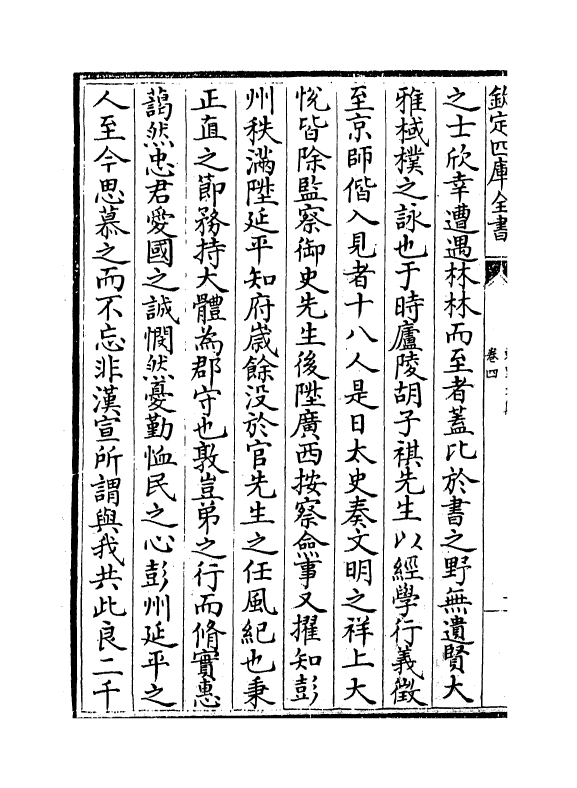 欽定四庫全書
卷四
之士欣幸遭遇林林而至者蓋比於書之野無遺賢大
雅棫樸之詠也于時廬陵胡子祺先生以經學行義徵
至京師偕入見者十八人是日太史奏文明之祥上大
悅皆除監察御史先生後陞廣西按察僉事又擢知彭
州秩滿陞延平知府歲餘沒於官先生之任風紀也秉
正直之節務持大體為郡守也敦豈弟之行而脩實惠
藹然忠君愛國之誠惻然憂勤恤民之心彭州延平之
人至今思慕之而不忘非漢宣所謂與我共此良二千